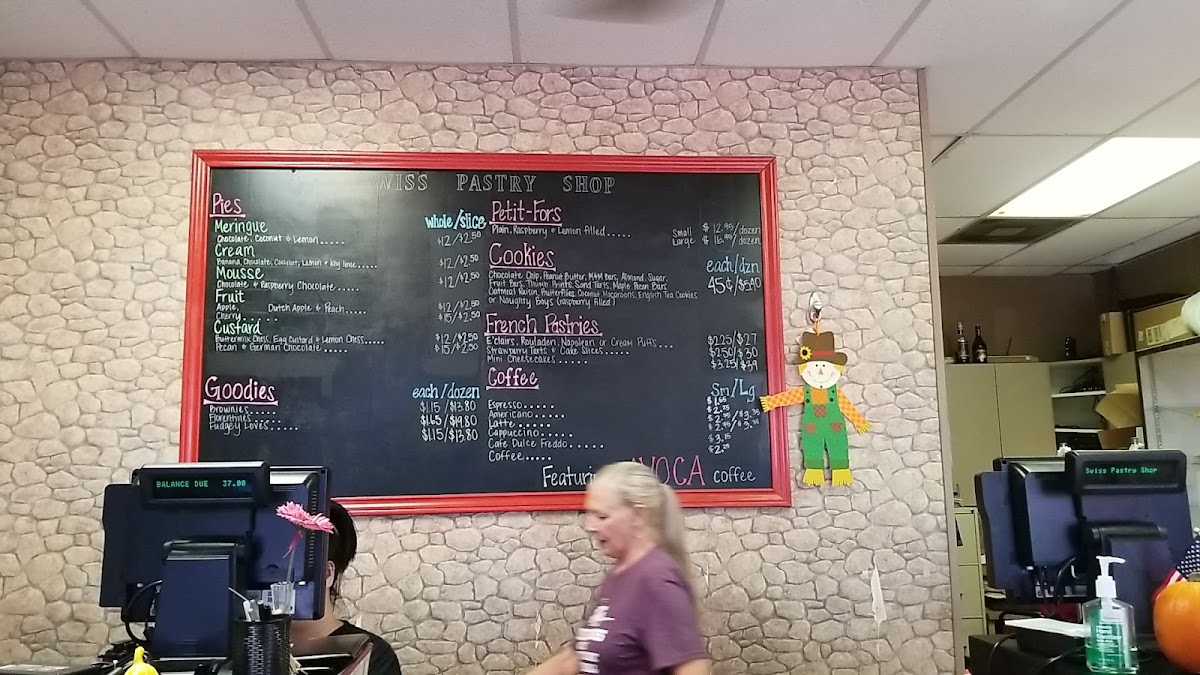 WISS PASTRY SHOP
Pies
whole/slice
Meringue
Chocolate, Coconut & Lemon.....
$12/$2.50
Cream
Banana, Chocolate, Coconut, Lemon & Key lime.....
$12/$2.50
Mousse
Chocolate & Raspberry Chocolate.....
$12/$2.50
Fruit
Apple, Dutch Apple & Peach.....
$12/$2.50
Cherry.....
$15/$2.50
Custard
Buttermilk Chess, Egg Custard & Lemon Chess.....
$12/$2.50
Pecan & German Chocolate.....
$15/$2.50
Goodies
each/dozen
Brownies.....
$1.15/$13.80
Florentines.....
$1.65/$19.80
Fudgey Loves.....
$1.15/$13.80
Petit-Fors
Plain, Raspberry & Lemon filled.....
Small $12.95/dozen
Large $16.95/dozen
Cookies
each/dzn
Chocolate Chip, Peanut Butter, M&M Bars, Almond, Sugar,
45¢/$5.40
Fruit Bars, Thumb Prints, Sand Tarts, Maple Pecan Bars
Oatmeal Raisin, Butterflies, Coconut Macaroons, English Tea Cookies
or Naughty Boys (raspberry filled)
French Pastries
E'clairs, Rouladen, Napolean or Cream Puffs...
$2.25/$27
Strawberry Tarts & Cake Slices......
$2.50/$30
Mini Cheesecakes......
$3.25/$39
Coffee
Sm/Lg
Espresso.....
$1.65
Americano.....
$2.25
Latte.....
$2.95/$3.35
Cappuccino.....
$2.95/$3.35
Cafe Dulce Freddo......
$3.15
Coffee.....
$2.25
Featuring AVOCA coffee
BALANCE DUE 37.00
Swiss Pastry Shop